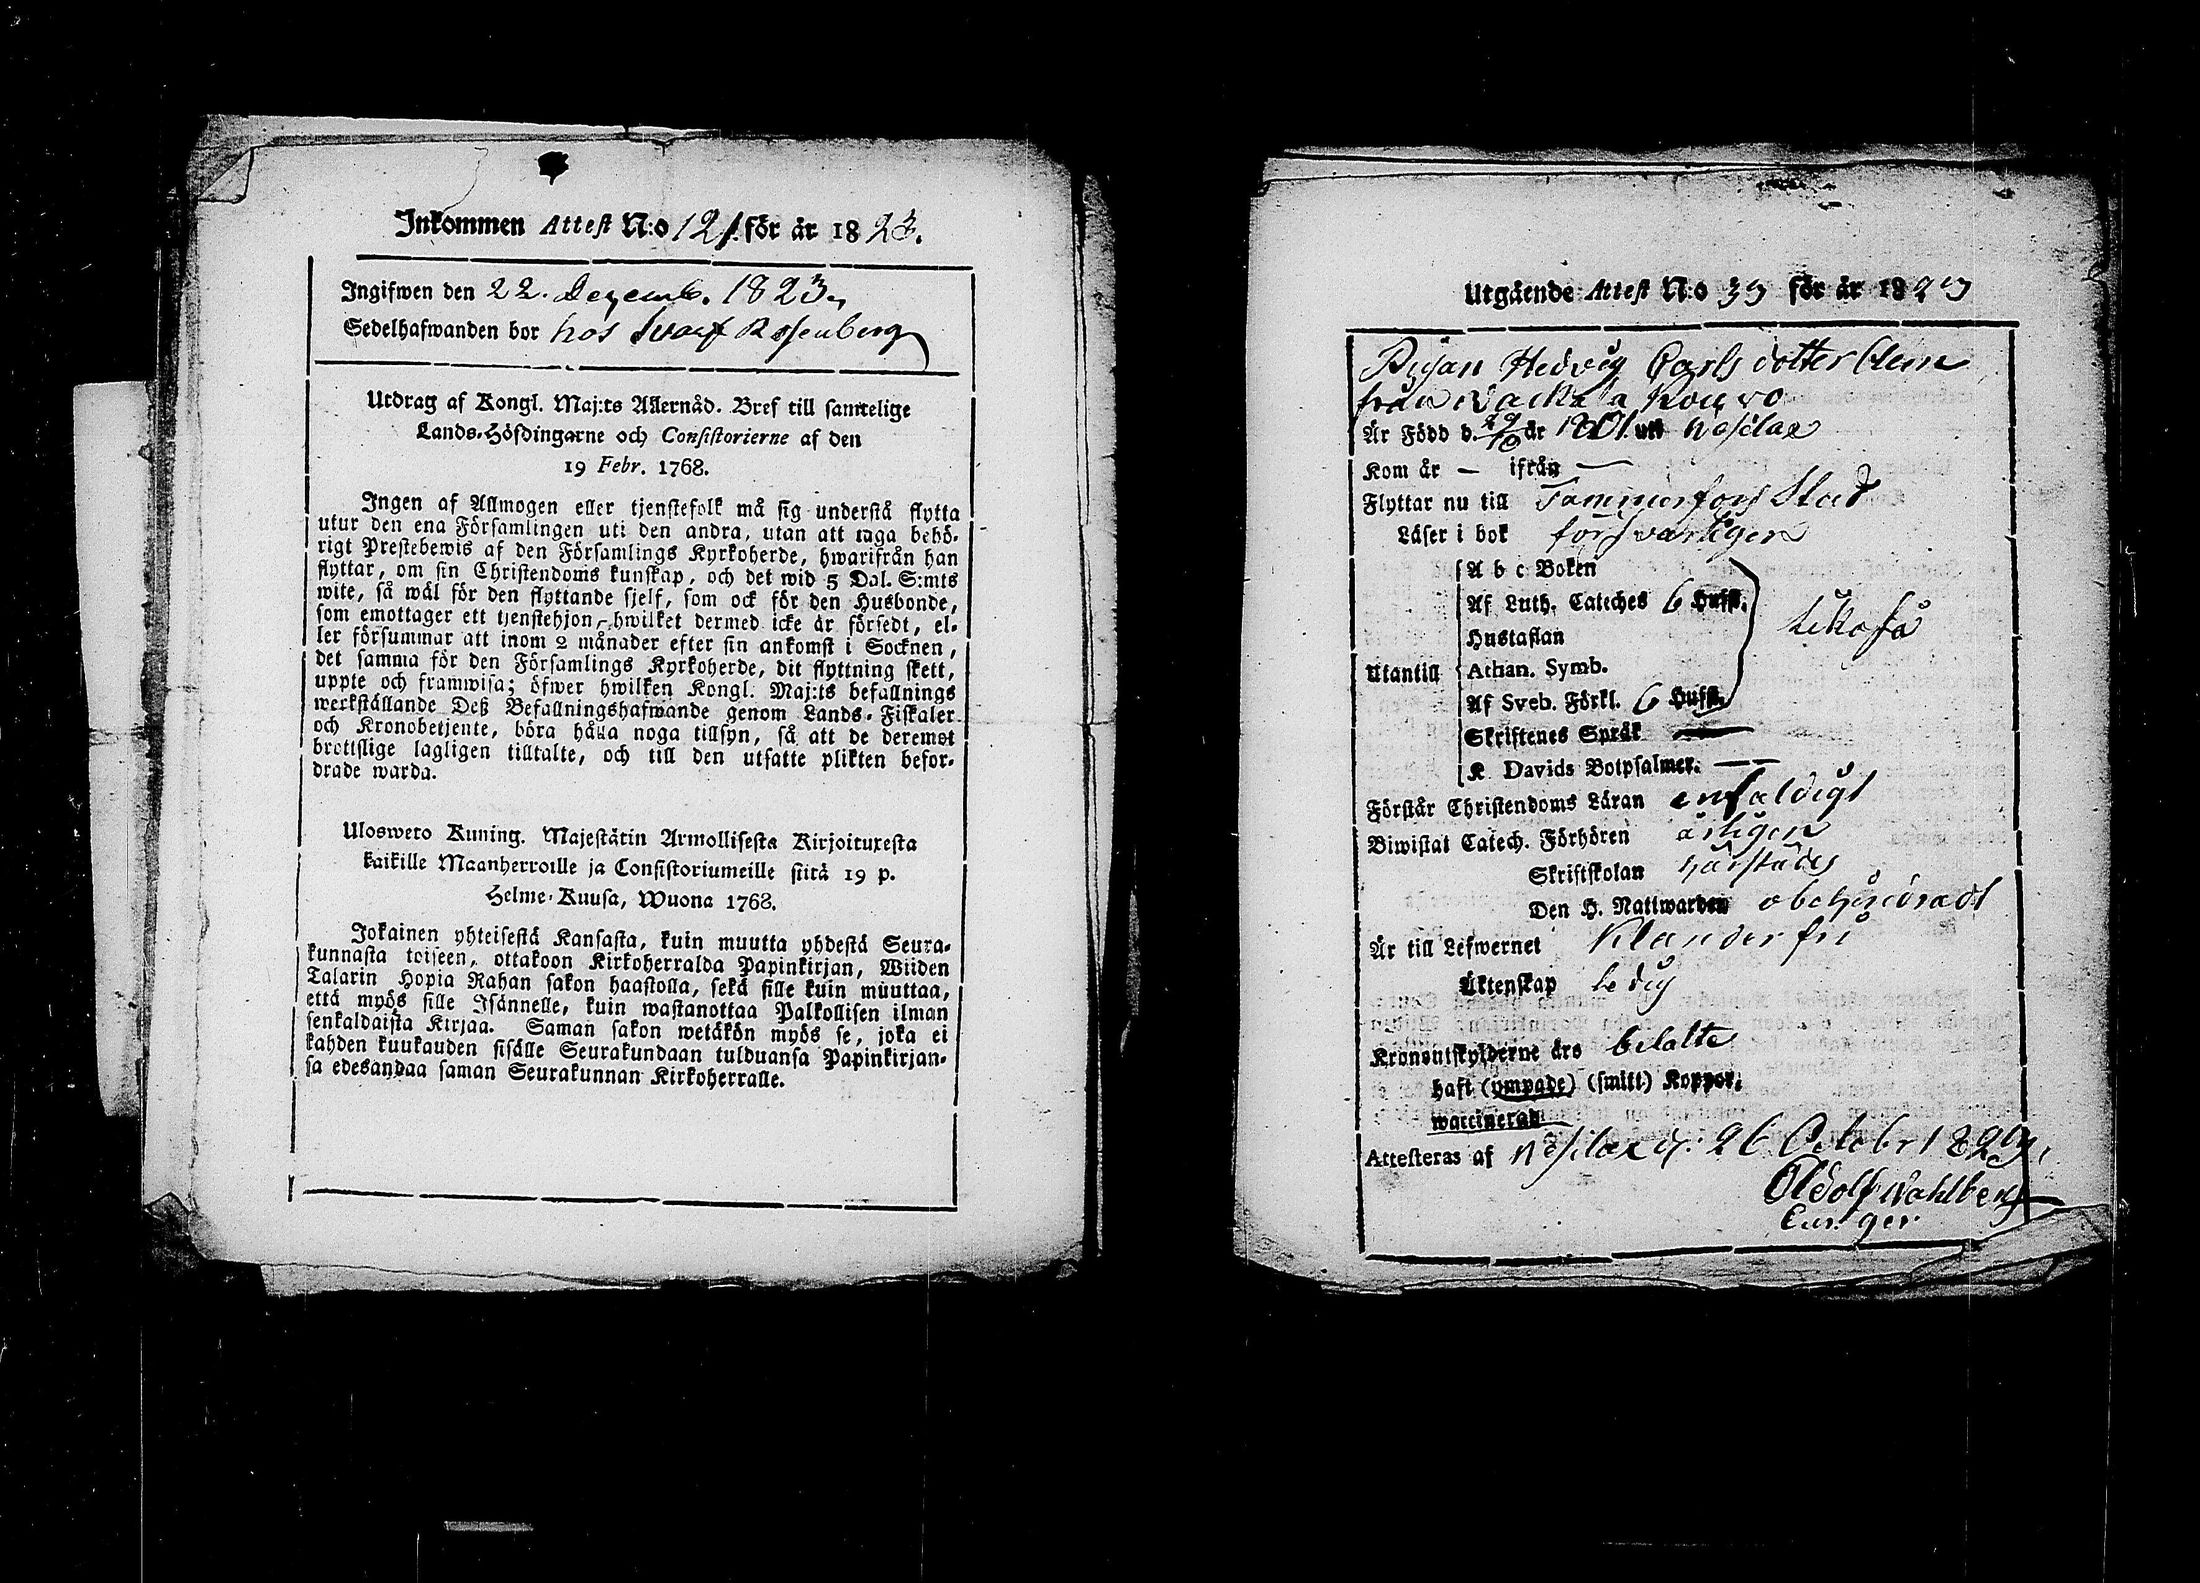 Inkommen Attest N:o 121. för år 1823.
Ingifwen den 22. Dezemb. 1823.
Sedelhafwanden bor hos Svarf Rosenberg
Utdrag af Kongl. Maj:ts Allernåd. Bref till samtelige
Lands-Höfdingarne och Consistorierne af den
19 Febr. 1768.
Ingen af Allmogen eller tjenstefolk må sig understå flytta
utur den ena Församlingen uti den andra, utan att taga behö-
rigt Prestebewis af den Församlings Kyrkoherde, hwarifrån han
flyttar, om sin Christendoms kunskap, och det wid 5 Dal. S:mts
wite, så wäl för den flyttande sjelf, som ock för den Husbonde,
som emottager ett tjenstehjon, hwilket dermed icke är försedt, el-
ler försummar att inom 2 månader efter sin ankomst i Socknen,
det samma för den Församlings Kyrkoherde, dit flyttning skett,
uppte och framwisa; öfwer hwilken Kongl. Maj:ts befallnings
werkställande Deß Befallningshafwande genom Lands-Fiskaler
och Kronobetjente, böra hålla noga tillsyn, så att de deremot
brottslige lagligen tilltalte, och till den utsatte plikten befor-
drade warda.
Ulosweto Kuning. Majestätin Armollisesta Kirjoituxesta
kaikille Maanherroille ja Consistoriumeille siitä 19 p.
Helme-Kuusa, Wuona 1768.
Jokainen yhteisestä Kansasta, kuin muutta yhdestä Seura-
kunnasta toiseen, ottakoon Kirkoherralda Papinkirjan, Wiiden
Talarin Hopia Rahan sakon haastolla, sekä sille kuin muuttaa,
että myös sille Isännelle, kuin wastanottaa Palkollisen ilman
senkaldaista Kirjaa. Saman sakon wetäkön myös se, joka ei
kahden kuukauden sisälle Seurakundaan tulduansa Papinkirjan-
sa edesandaa saman Seurakunnan Kirkoherralle.
Utgående Attest N:o 39 för år 1823
Pigan Hedvig Carlsdotter
från
Är Född d. 29/10 år 1801. uti Wesilax
Kom år — ifrån —
Flyttar nu till Tammerfors Stad
Läser i bok försvarligen
A b c Boken
Af Luth. Cateches 6 Hufst.
Hustaflan
likaså
Utantill
Athan. Symb.
Af Sveb. Förkl. 6 Hufst.
Skriftenes Språk —
K Davids Botpsalmer. — —
Förstår Christendoms Läran enfaldigt
Biwistat Catech. Förhören årligen
Skriftskolan härstädes
Den H. Nattwarden obehindradt
Är till Lefwernet klanderfri
Äktenskap ledig
Kronoutskylderne äro betalte
haft (ympade) (smitt) Koppor.
waccinerad
Attesteras af Wesilax d: 26 Octobr 1823.
Adolf Wahlberg
Cur. ger.